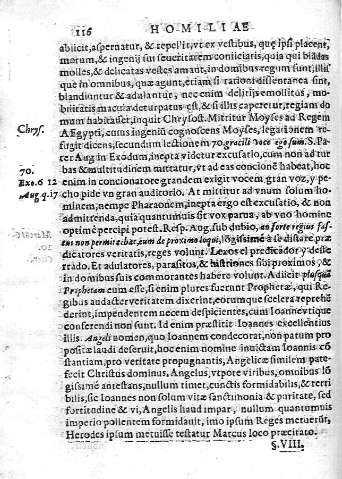 116 HOMILIAE
abiicit, aspernatur, & repellit, vt ex vestibus, quę ipsi placent,
morum, & ingenij sui seueritatem coniiciatis, quia qui blādas
molles, & delicatas vestes amant, in domibus regum sunt, illis
que in omnibus, quæ agunt, etiam si rationi dissentanea sint,
blandiuntur & adulantur, nec enim delitijs emollitus, mo-
bilitatis macula deturpatus est, & si illis caperetur, regiam do
mum habitasset, inquit Chrysost. Mittitur Moyses ad Regem
Chrys.
Aegypti, cuius ingeniū cognoscens Moyses, legationem re-
fugit dicens, secundum lectionem 70. gracili voce ego sum. S. Pa-
ter Aug in Exodum, inepta videtur excusatio, cum non ad tur
bas & multitudinem mittatur, vt ad eas concione habeat, hoc
70.
enim in concionatore grandem exigit vocem gran vox, y pe-
Exo. 6 12
cho pide vn gran auditorio. At mittitur ad vnum solum ho-
Aug q. 17
minem, nempe Pharaonem, inepta ergo est excusatio, & non
admittenda, quia quantumuis sit vox parua, ab vno homine
optime percipi potest. Resp. Aug. sub dubio, an forte regius fas-
tus non permittebat, eum de proximo loqui, lōgissime à se distare prę-
dicatores veritatis, reges volunt. Lexos el predicador y dester
rado. Et adulatores, parasitos, & histriones sibi proximos, &
in domibus suis commorantes habere volunt. Adiicit plusquā
Prophetam eum esse, si enim plures fuerunt Prophetæ, qui Re-
gibus audacter veritatem dixerint, eorumque scelera reprehē
derint, impendentem necem despicientes, cum Ioanne vtique
conferendi non sunt. Id enim præstitit Ioannes excellentius
illis. Angeli nomen, quo Ioannem condecorat, non patum pro
positæ laudi deseruit, hoc enim nomine inuictam Ioannis cō
stantiam, pro veritate propugnantis, Angelicæ similem pate-
fecit Christus dominus, Angelus, vtpote viribus, omnibus lō
gissimè antestans, nullum timet, cunctis formidabilis, & terri
bilis, sic Ioannes non solum vitæ sanctimonia & puritate, sed
fortitudine & vi, Angelis haud impar, nullum quantumuis
imperio pollentem formidauit, imo ipsum Reges metuerūt,
Herodes ipsum metuisse testatur Marcus loco præcitato.
§. VIII.